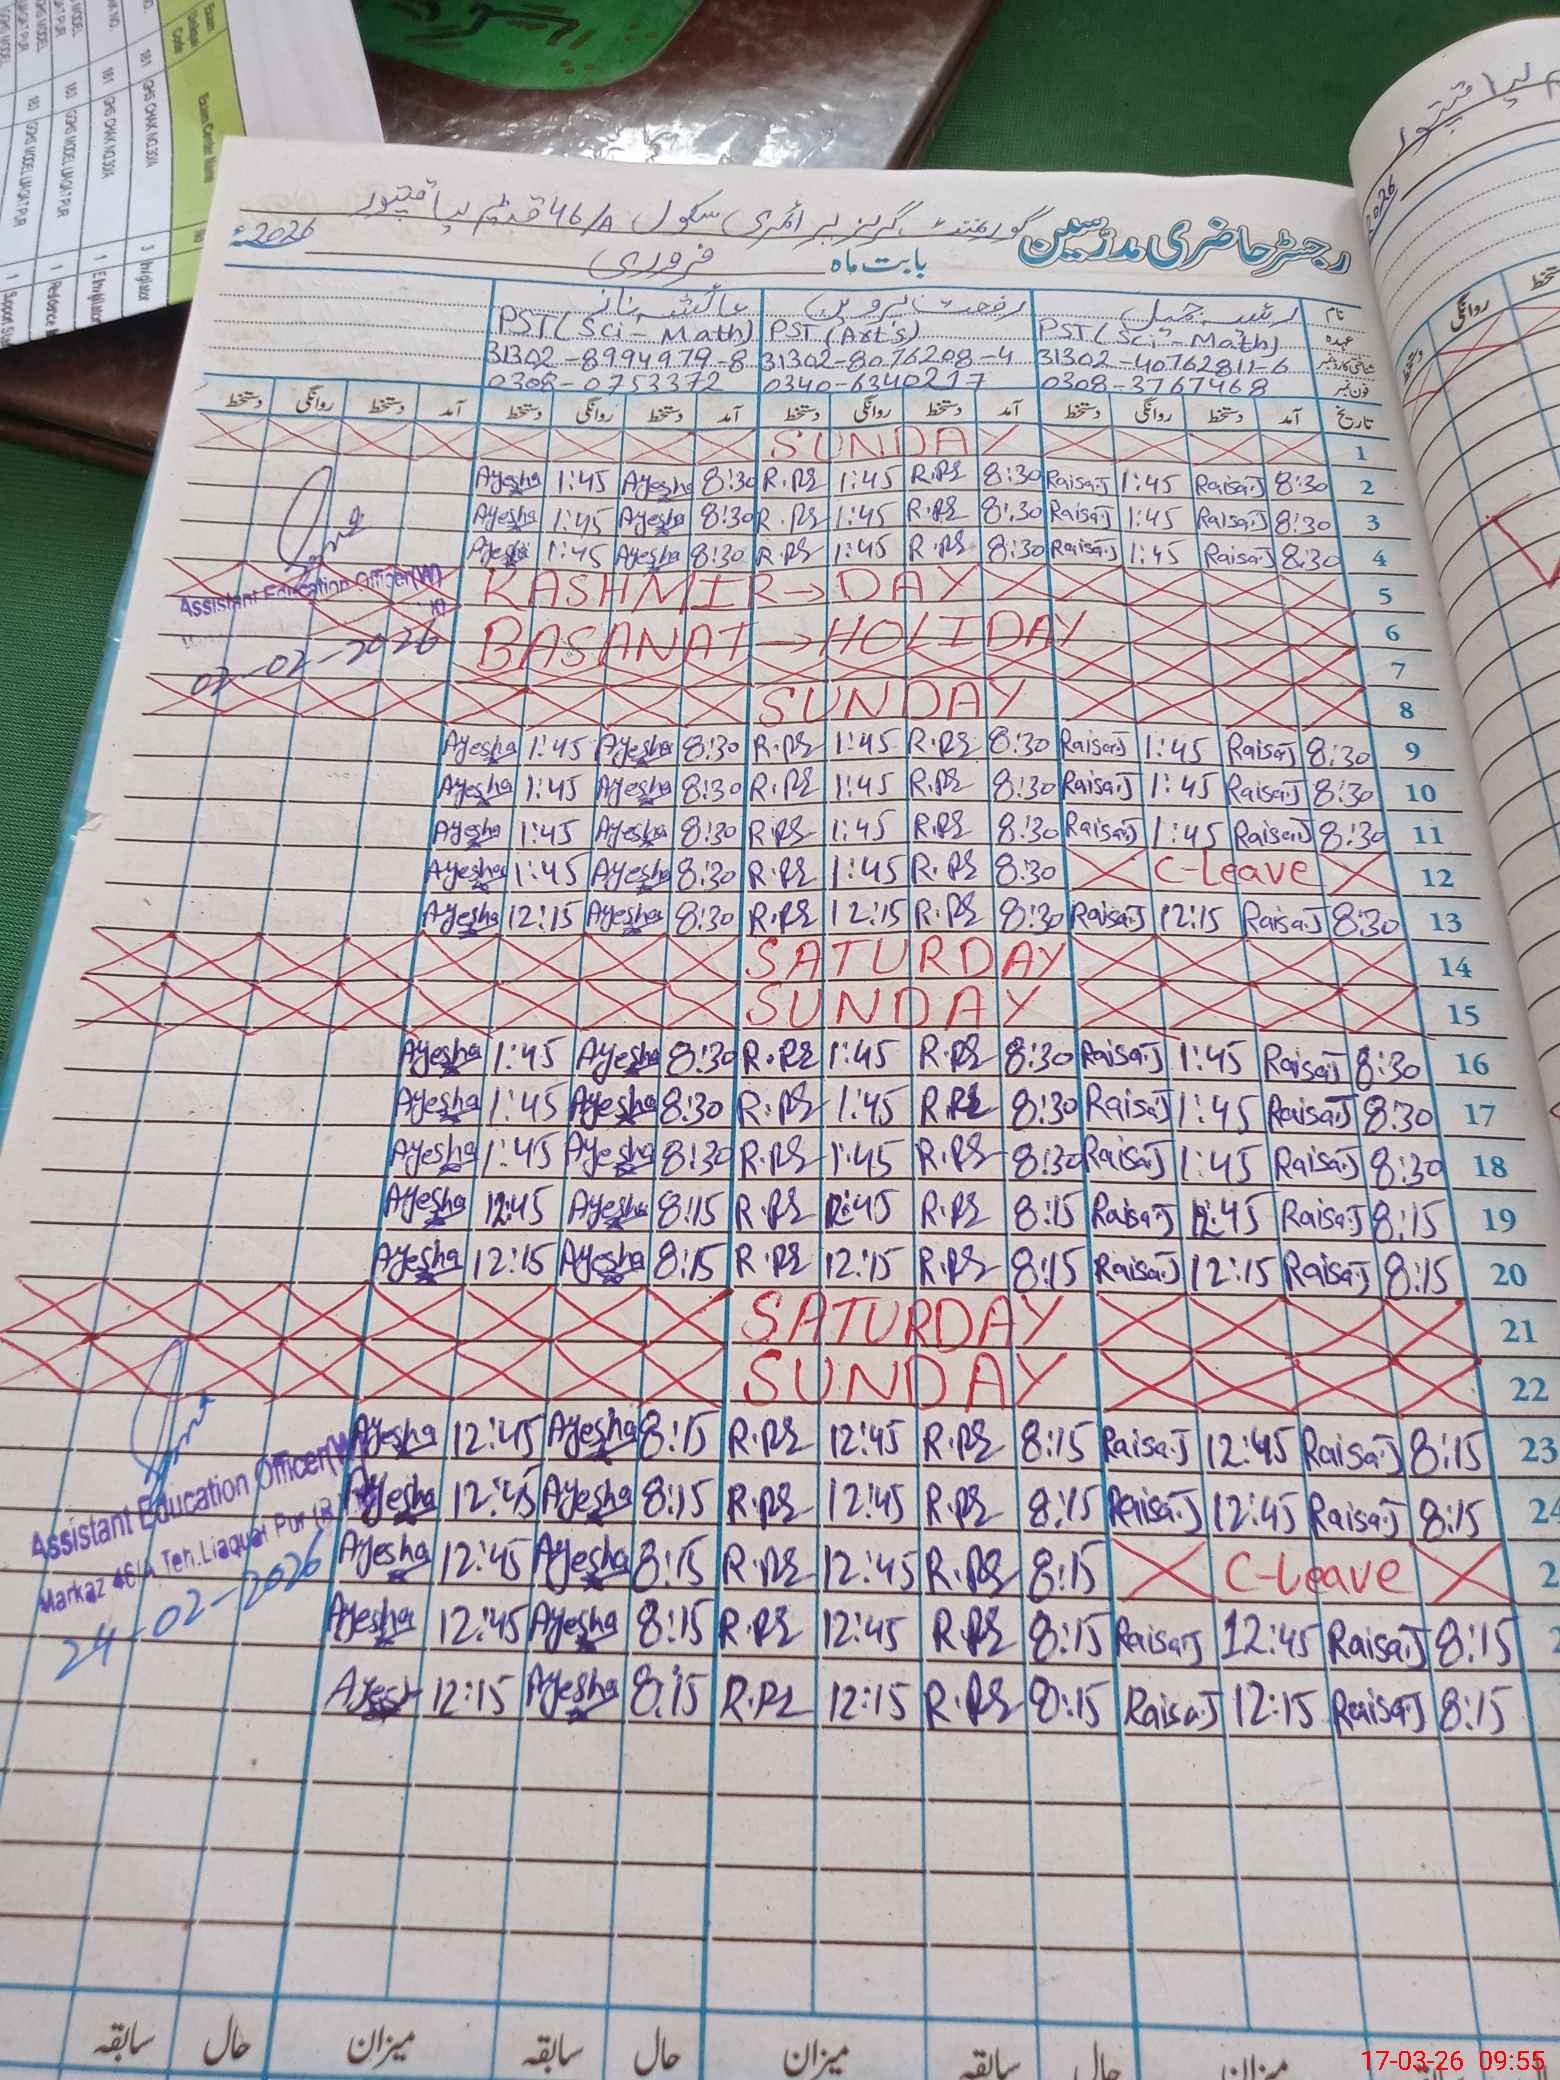 رجسٹر حاضری مدرسین گورنمنٹ گرلز پرائمری سکول 46/A
بابت ماہ فروری 2026ء
نام
عہدہ PST (Sci - Math) PST (Art's) PST (Sci - Math)
شناختی کارڈ نمبر 31302-40762811-6 31302-8076208-4 31302-8994979-8
فون نمبر 0308-3767468 0340-6340217 0308-0753372
تاریخ آمد دستخط روانگی دستخط آمد دستخط روانگی دستخط آمد دستخط روانگی دستخط آمد دستخط روانگی دستخط
SUNDAY 1
Ayesha 1:45 Ayesha 8:30 R.PS 1:45 R.PS 8:30 Raisa.J 1:45 Raisa.J 8:30 2
Ayesha 1:45 Ayesha 8:30 R.PS 1:45 R.PS 8:30 Raisa.J 1:45 Raisa.J 8:30 3
Ayesha 1:45 Ayesha 8:30 R.PS 1:45 R.PS 8:30 Raisa.J 1:45 Raisa.J 8:30 4
Assistant Education Officer(W)
02-02-2026
KASHMIR → DAY 5
BASANAT → HOLIDAY 6
7
SUNDAY 8
Ayesha 1:45 Ayesha 8:30 R.PS 1:45 R.PS 8:30 Raisa.J 1:45 Raisa.J 8:30 9
Ayesha 1:45 Ayesha 8:30 R.PS 1:45 R.PS 8:30 Raisa.J 1:45 Raisa.J 8:30 10
Ayesha 1:45 Ayesha 8:30 R.PS 1:45 R.PS 8:30 Raisa.J 1:45 Raisa.J 8:30 11
Ayesha 1:45 Ayesha 8:30 R.PS 1:45 R.PS 8:30 C-Leave 12
Ayesha 12:15 Ayesha 8:30 R.PS 12:15 R.PS 8:30 Raisa.J 12:15 Raisa.J 8:30 13
SATURDAY 14
SUNDAY 15
Ayesha 1:45 Ayesha 8:30 R.PS 1:45 R.PS 8:30 Raisa.J 1:45 Raisa.J 8:30 16
Ayesha 1:45 Ayesha 8:30 R.PS 1:45 R.PS 8:30 Raisa.J 1:45 Raisa.J 8:30 17
Ayesha 1:45 Ayesha 8:30 R.PS 1:45 R.PS 8:30 Raisa.J 1:45 Raisa.J 8:30 18
Ayesha 12:45 Ayesha 8:15 R.PS 12:45 R.PS 8:15 Raisa.J 12:45 Raisa.J 8:15 19
Ayesha 12:15 Ayesha 8:15 R.PS 12:15 R.PS 8:15 Raisa.J 12:15 Raisa.J 8:15 20
SATURDAY 21
SUNDAY 22
Ayesha 12:45 Ayesha 8:15 R.PS 12:45 R.PS 8:15 Raisa.J 12:45 Raisa.J 8:15 23
Ayesha 12:45 Ayesha 8:15 R.PS 12:45 R.PS 8:15 Raisa.J 12:45 Raisa.J 8:15 24
Ayesha 12:45 Ayesha 8:15 R.PS 12:45 R.PS 8:15 C-Leave 2
Ayesha 12:45 Ayesha 8:15 R.PS 12:45 R.PS 8:15 Raisa.J 12:45 Raisa.J 8:15 2
Ayesh 12:15 Ayesha 8:15 R.PS 12:15 R.PS 8:15 Raisa.J 12:15 Raisa.J 8:15
Assistant Education Officer(W)
Markaz 46/A Teh.Liaquat Pur
24-02-2026
میزان حال سابقہ میزان حال سابقہ میزان حال سابقہ
17-03-26 09:55